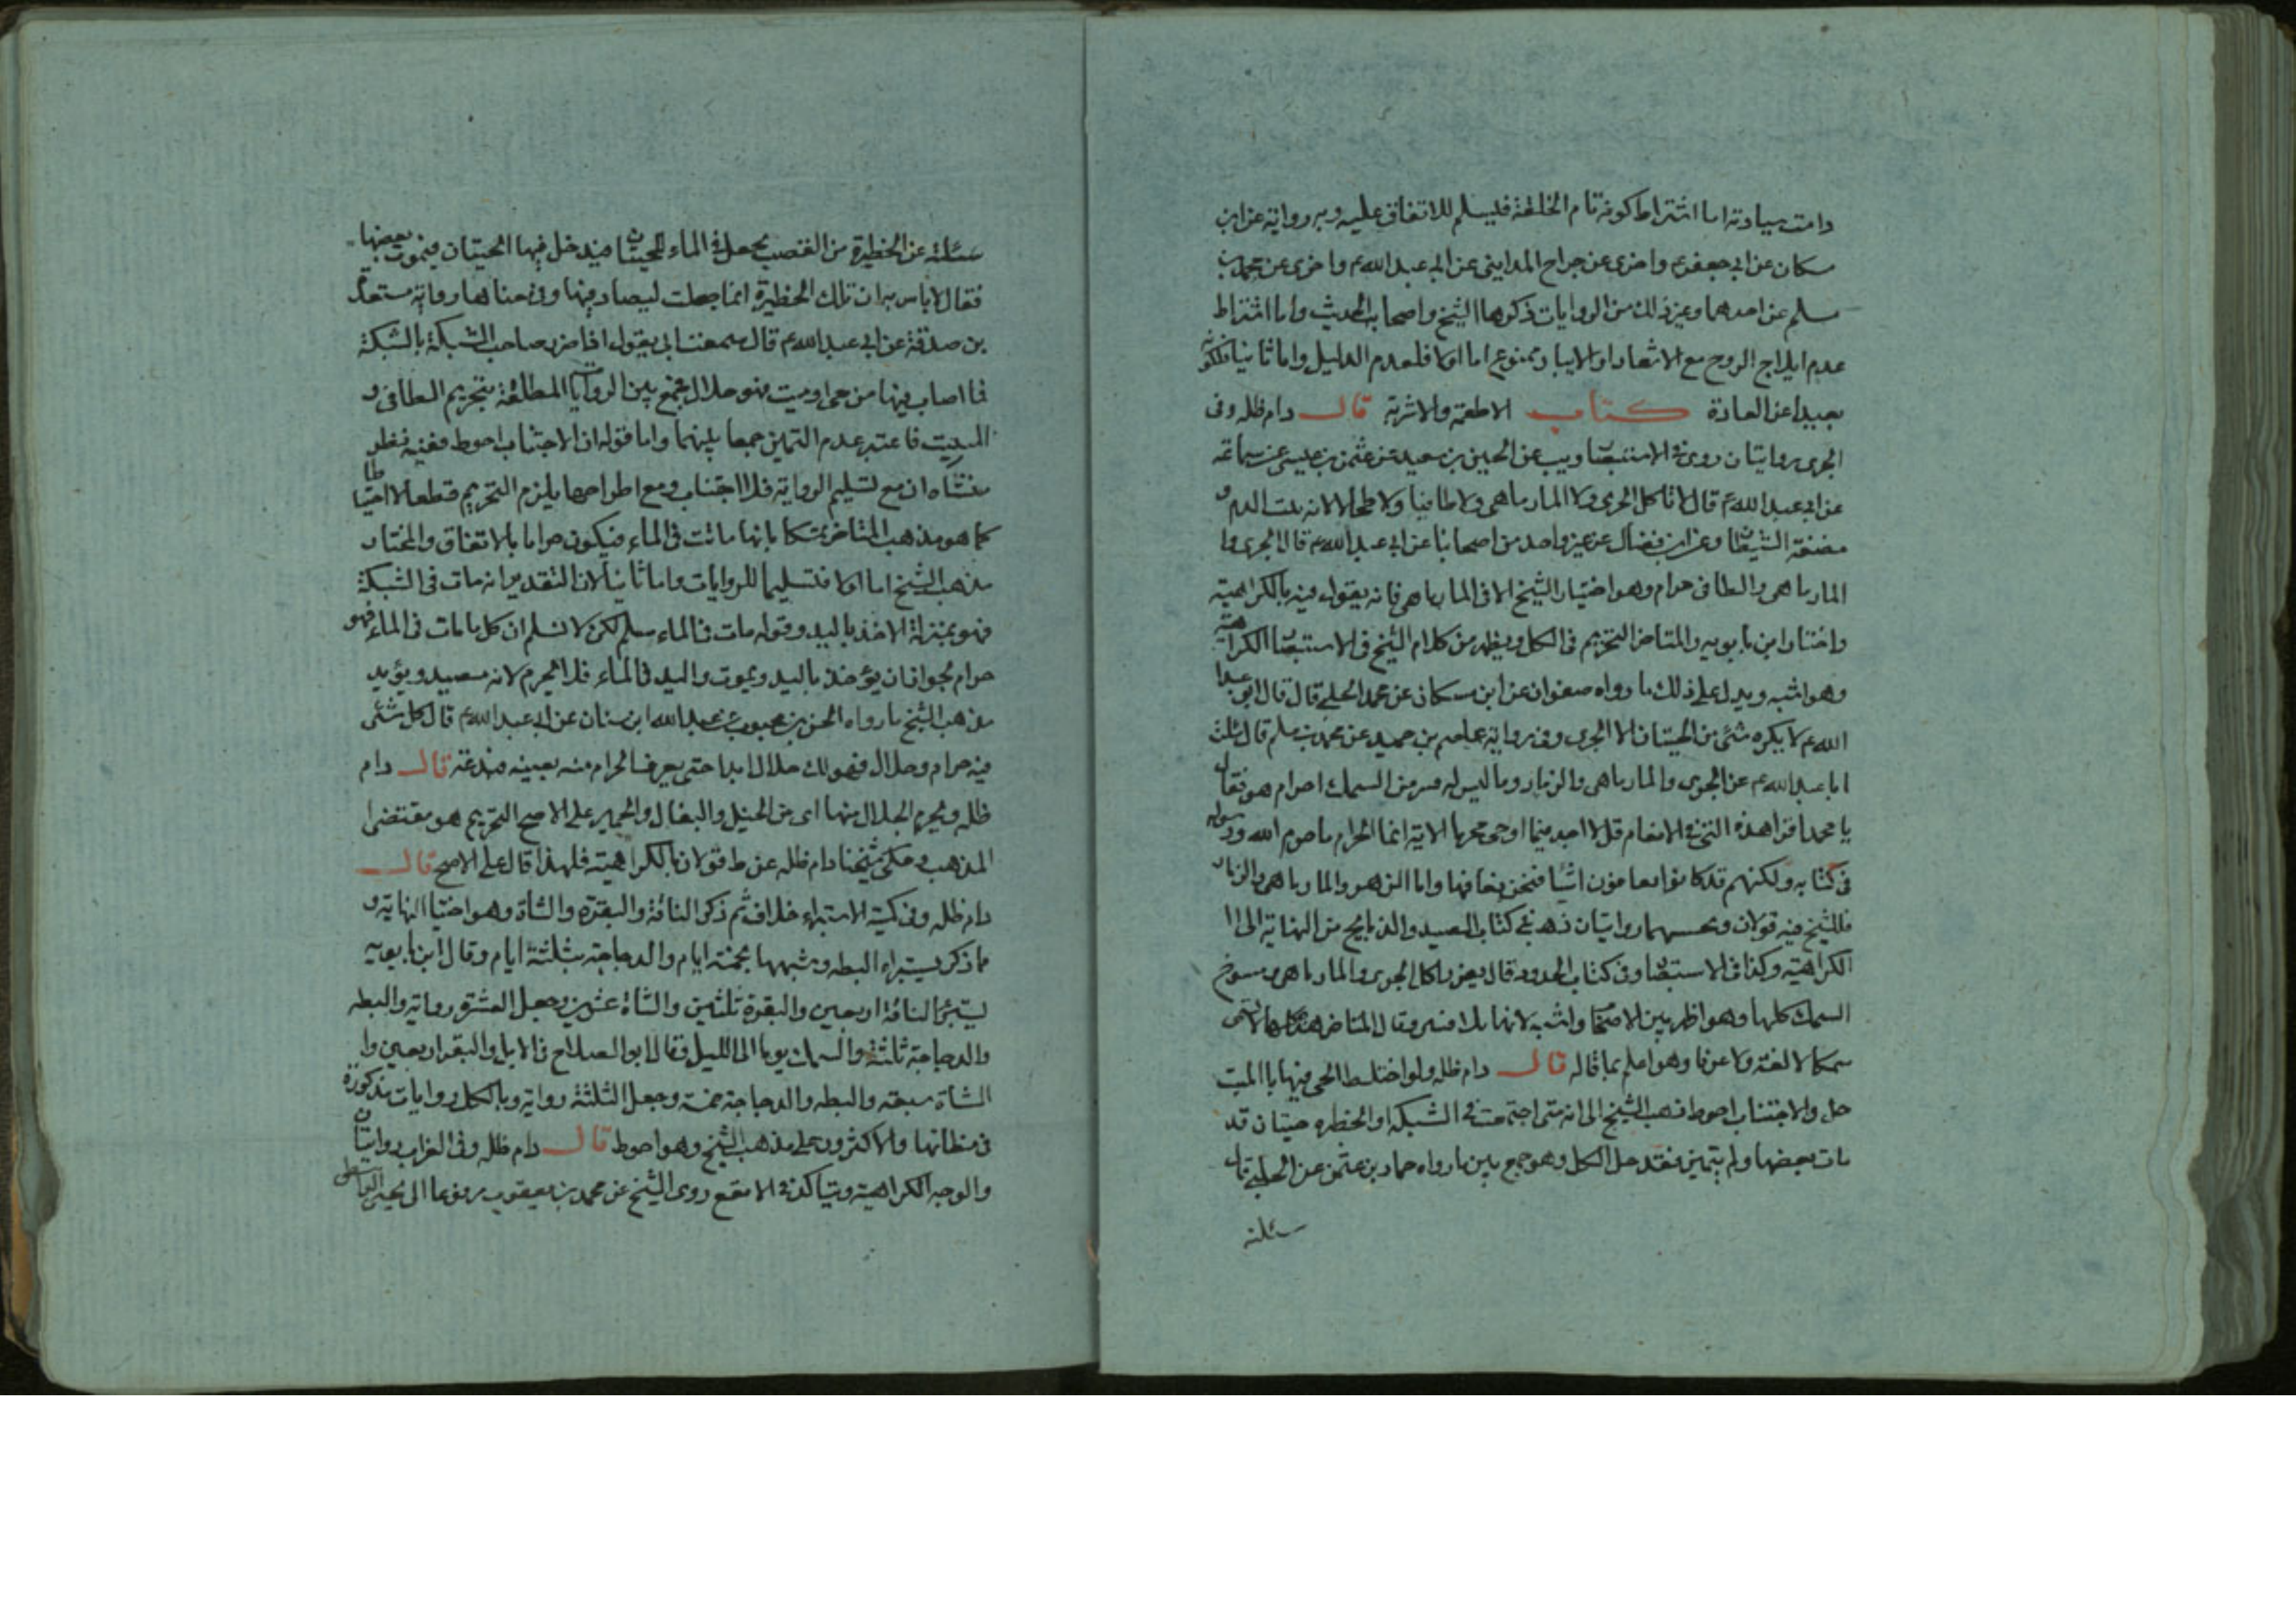 دامت سيادته اما اشتراط كونه تام الخلقة فليسلم للاتفاق عليه وبه رواية عن ابن
سكان عن ابي جعفر ع واخرى عن جراح المدايني عن ابي عبد الله ع واخرى عن محمد بن
مسلم عن احدهما وغير ذلك من الروايات ذكرها الشيخ واصحاب الحديث واما اشتراط
عدم ايلاج الروح مع الاشعار او الايبار ممنوع اما اولا فلعدم الدليل واما ثانيا فلكونه
بعيدا عن العادة كتاب الاطعمة والاشربة قال دام ظله وفي
الجرى روايتان روى في الاستبصار عن الحسين بن سعيد عن عثمن بن عيسى عن سماعه
عن ابي عبد الله ع قال لا تاكل الجرى ولا المارماهى ولا طافيا ولا طحالا لانه بيت الدم و
مضغة الشيطان وعن ابن فضال عن غير واحد من اصحابنا عن ابي عبد الله ع قال الجرى وا
المارماهى والطافى حرام وهو اختيار الشيخ الا في المارماهى فانه يقول فيه بالكراهية
واختار ابن بابويه والمتاخر التحريم في الكل ويظهر من كلام الشيخ في الاستبصار الكراهية
وهو اشبه ويدل على ذلك ما رواه صفوان عن ابن مسكان عن محمد الحلبي قال قال ابو عبد
الله ع لا يكره شئ من الحيتان الا الجرى وفي رواية عاصم بن حميد عن محمد بن مسلم قال سئلت
ابا عبد الله ع عن الجرى والمارماهى والزمار وما ليس له قسر من السمك احرام هو فقال
يا محمد اقرا هذه التي في الانعام قل لا اجد فيما اوحى محرما الاية انما الحرام ما حرم الله ورسوله
في كتابه ولكنهم قد كانوا يعافون اشيا فنحن نعافها واما الزهو والمارماهى والزمار
فللشيخ فيه قولان وبحسبهما روايتان ذهب في كتاب الصيد والذبايح من النهاية الى ا
الكراهية وكذا في الاستبصار وفي كتاب الحدود قال يعزر باكل الجرى والمارماهى ومسوخ
السمك كلها وهو اظهر بين الاصحاب واشبه لانها بلا فلس وقال المتاخر هذه كلها لا تسمى
سمكا لا لغة ولا عرفا وهو اعلم بما قاله قال دام ظله ولو اختلط الحي فيها بالميت
حل والاجتناب احوط ذهب الشيخ الى انه متى اجتمعت في الشبكه او الحظيره حيتان قد
مات بعضها ولم يتميز فقد حل الكل وهو جمع بين ما رواه حماد بن عثمن عن الحلبي قال
سئلته
سئلته عن الحظيرة من القصب يجعل في الماء للحيتان فيدخل فيها الحيتان فيموت بعضها
فقال لا باس به ان تلك الحظيرة انما جعلت ليصاد فيها وفي معناها رواية مسعدة
بن صدقة عن ابي عبد الله ع قال سمعت ابي يقول اذا ضرب صاحب الشبكة بالشبكة
فما اصاب فيها من حى او ميت فهو حلال يجمع بين الروايات المطلقة بتحريم الطافى و
الميت فاعتبر عدم التميز جمعا بينهما واما قوله ان الاجتناب احوط ففيه نظر
منشاه ان مع تسليم الرواية فلا اجتناب ومع اطراحها يلزم التحريم قطعا لا احتياطا
كما هو مذهب المتاخر تمسكا بانها ماتت في الماء فيكون حراما بالاتفاق والمختار
مذهب الشيخ اما اولا فتسليما للروايات واما ثانيا لان التقدير انه مات في الشبكة
فهو بمنزلة الاخذ باليد وقوله مات في الماء مسلم لكن لا نسلم ان كل ما مات في الماء فهو
حرام لجواز ان يؤخذ باليد ويموت واليد في الماء فلا يحرم لانه مصيد ويؤيد
مذهب الشيخ ما رواه الحسن بن محبوب عن عبد الله ابن سنان عن ابي عبد الله ع قال كل شئ
فيه حرام وحلال فهو لك حلال ابدا حتى يعرف الحرام منه بعينه فيدعه قال دام
ظله ويحرم الجلال منها اى من الخيل والبغال والحمير على الاصح التحريم هو مقتضى ا
المذهب وحكى شيخنا دام ظله عن ط قولا بالكراهية فلهذا قال على الاصح قال
دام ظله وفي كمية الاستبراء خلاف ثم ذكر الناقة والبقرة والشاة وهو اختيار النهاية و
ما ذكر يستبراء البطه وشبهها بخمسة ايام والدجاجة بثلثة ايام وقال ابن بابويه
يستبرئ الناقة اربعين والبقرة ثلثين والشاة عشرين وجعل العشرة رواية والبطه
والدجاجة ثلثة والسمك يوما الى الليل وقال ابو الصلاح في الابل والبقر اربعين وا
الشاة سبعه والبطه والدجاجة خمسة وجعل الثلثة رواية وبالكل روايات مذكورة
في مظانها والاكثرون على مذهب الشيخ وهو احوط قال دام ظله وفي الغراب روايتان
والوجه الكراهية ويتاكد في الابقع روى الشيخ عن محمد بن يعقوب مرفوعا الى يحيى الواسطى